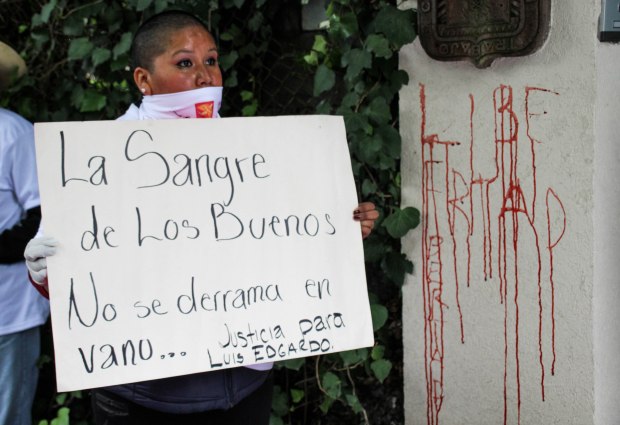 La Sangre
de Los Buenos
No se derrama en
vano... Justicia para
Luis EDGARDO.
LIBE
RTAD